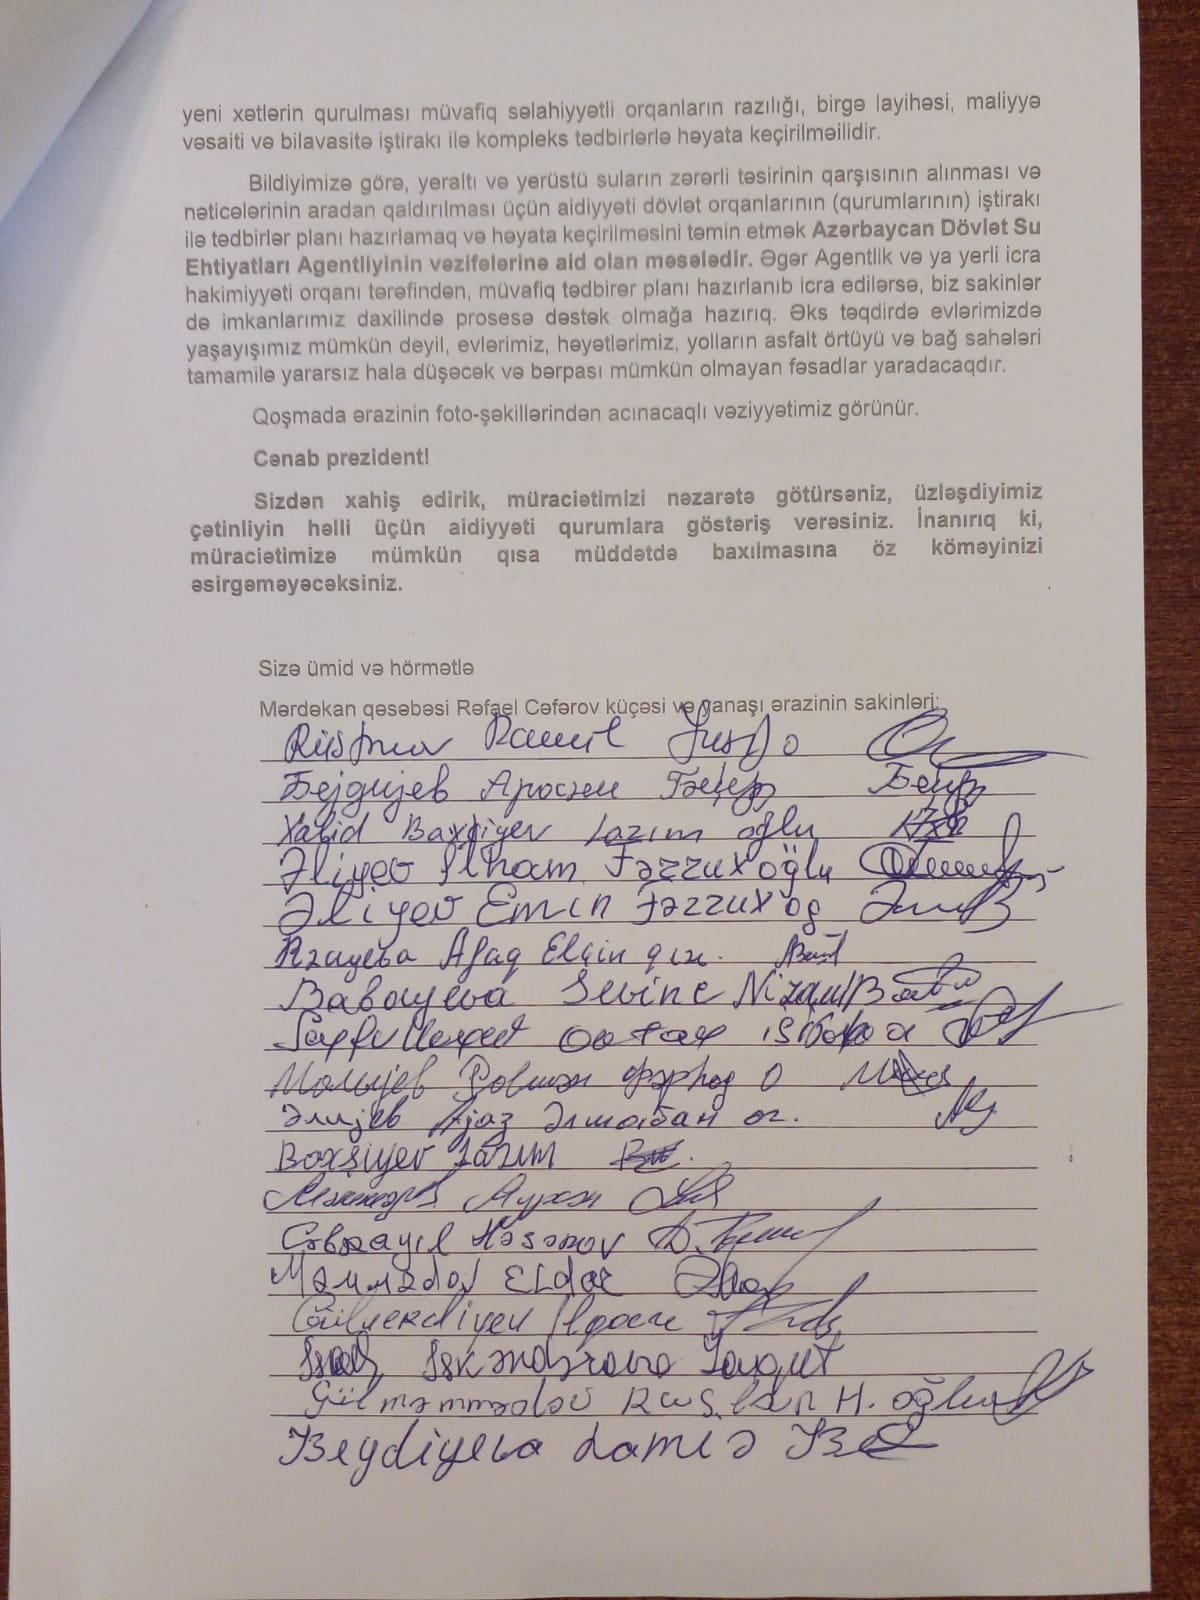 yeni xətlərin qurulması müvafiq səlahiyyətli orqanların razılığı, birgə layihəsi, maliyyə
vəsaiti və bilavasitə iştirakı ilə kompleks tədbirlərlə həyata keçirilməilidir.
Bildiyimizə görə, yeraltı və yerüstü suların zərərli təsirinin qarşısının alınması və
nəticələrinin aradan qaldırılması üçün aidiyyəti dövlət orqanlarının (qurumlarının) iştirakı
ilə tədbirlər planı hazırlamaq və həyata keçirilməsini təmin etmək Azərbaycan Dövlət Su
Ehtiyatları Agentliyinin vəzifələrinə aid olan məsələdir. Əgər Agentlik və ya yerli icra
hakimiyyəti orqanı tərəfindən, müvafiq tədbirər planı hazırlanıb icra edilərsə, biz sakinlər
də imkanlarımız daxilində prosesə dəstək olmağa hazırıq. Əks təqdirdə evlərimizdə
yaşayışımız mümkün deyil, evlərimiz, həyətlərimiz, yolların asfalt örtüyü və bağ sahələri
tamamilə yararsız hala düşəcək və bərpası mümkün olmayan fəsadlar yaradacaqdır.
Qoşmada ərazinin foto-şəkillərindən acınacaqlı vəziyyətimiz görünür.
Cənab prezident!
Sizdən xahiş edirik, müraciətimizi nəzarətə götürsəniz, üzləşdiyimiz
çətinliyin həlli üçün aidiyyəti qurumlara göstəriş verəsiniz. İnanırıq ki,
müraciətimizə mümkün qısa müddətdə baxılmasına öz köməyinizi
əsirgəməyəcəksiniz.
Sizə ümid və hörmətlə
Mərdəkan qəsəbəsi Rəfael Cəfərov küçəsi və yanaşı ərazinin sakinləri:
Ramil
Бејдијев
Xalid Baxşiyev Lazım oğlu
Əliyev İlham Fərrux oğlu
Əliyev Emin Fərrux og
Rzayeva Afaq Elçin qız.
Babayeva Sevinc Nizami
Ровшан Фәрһад О
Әлијев Ајаз
Baxşiyev Lazım
Cəbrayıl Həsənov
Məmmədov Eldar
İsgəndərova Yaqut
Gülməmmədov Ruslan H. oğlu
Beydiyeva Lamiə